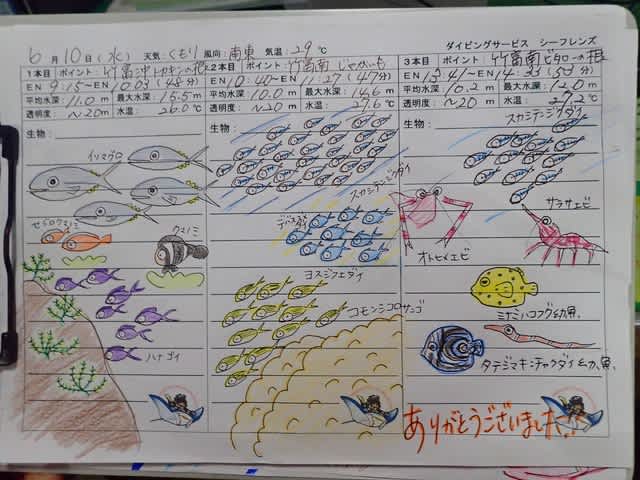 ダイビングサービス シーフレンズ
6月10日(水) 天気:くもり 風向:南東 気温:29℃
1本目 ポイント:竹富沖トカキンの根
EN 9:15〜EN 10:03(48分)
平均水深:11.0m 最大水深:15.5m
透明度:〜20m 水温:26.0℃
生物:
イソマグロ
セジロクマノミ
クマノミ
ハナゴイ
2本目 ポイント:竹富南
EN 10:40〜EN 11:27(47分)
平均水深:10.0m 最大水深:14.6m
透明度:〜20m 水温:27.6℃
生物:
スカシテンジクダイ
デバスズメダイ
ヨスジフエダイ
コモンシコロサンゴ
3本目 ポイント:竹富南ビタローの根
EN 13:41〜EN 14:33
平均水深:10.2m 最大水深:12.0m
透明度:〜20m 水温:27.2℃
生物:
スカシテンジクダイ
オトヒメエビ
サラサエビ
ミナミハコフグ幼魚
タテジマキンチャクダイ幼魚
ありがとうございました!